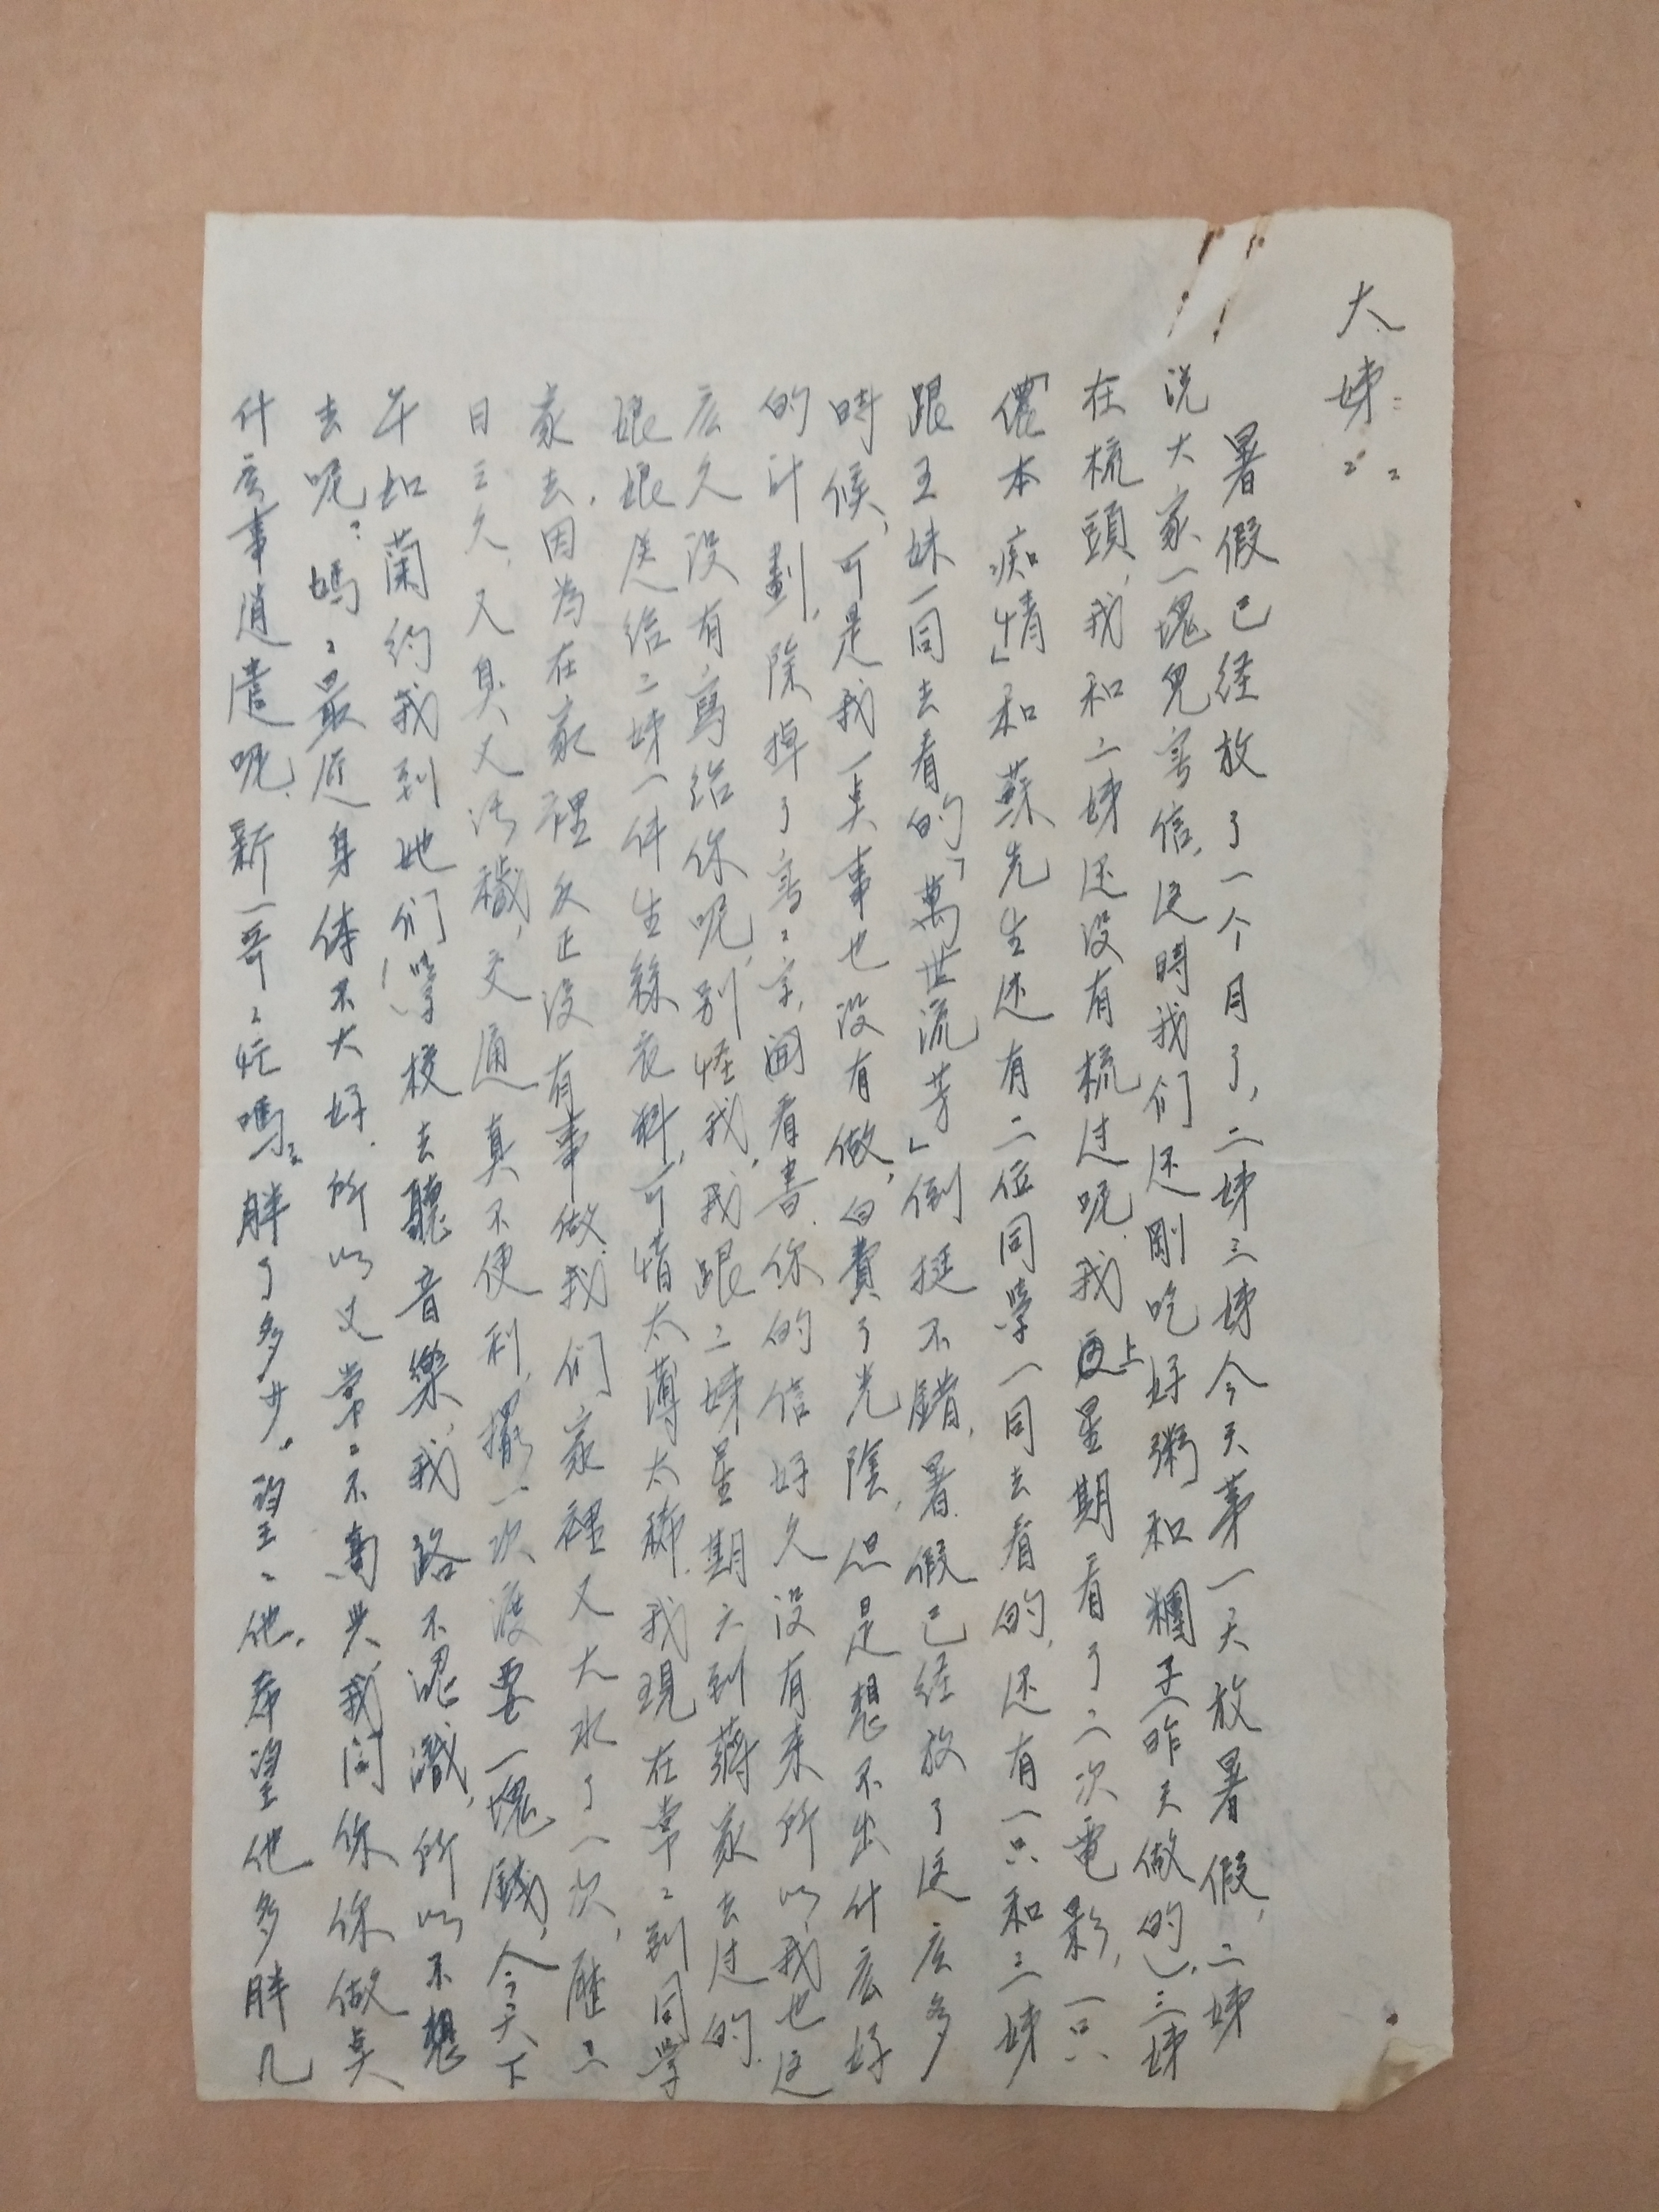 大姊：
暑假已経放了一个月了，二姊三姊今天第一天放暑假，二姊
说大家一塊兒寫信，这時我们还剛吃好粥和糰子（昨天做的），三姊
在梳頭，我和二姊还没有梳过呢，我上星期看了二次電影，一只
「儂本痴情」和蘇先生还有二位同學一同去看的，还有一只和三姊
跟王妹一同去看的「萬世流芳」倒挺不錯，暑假已経放了这広多
時候，可是我一点事也没有做，白費了光陰，但是想不出什広好
的計劃，除掉了寫〻字，看看書．你的信好久没有来所以我也这
広久没有寫給你呢，别怪我，我跟二姊星期六到蔣家去过的．
娘娘送给二姊一件生絲衣料，可惜太薄太稀．我現在常〻到同学
家去，因為在家裡反正没有事做．我们家裡又大水了一次，歷二
日之久，又臭又污穢，交通真不便利，擺一次渡要一塊錢，今天下
午如蘭约我到她们學校去聽音樂，我路不認識，所以不想
去呢？媽〻最近身体不大好．所以又常〻不高兴，我问你你做点
什広事消遣呢，新一哥〻忙嗎？胖了多少．望〻他，希望他多胖几